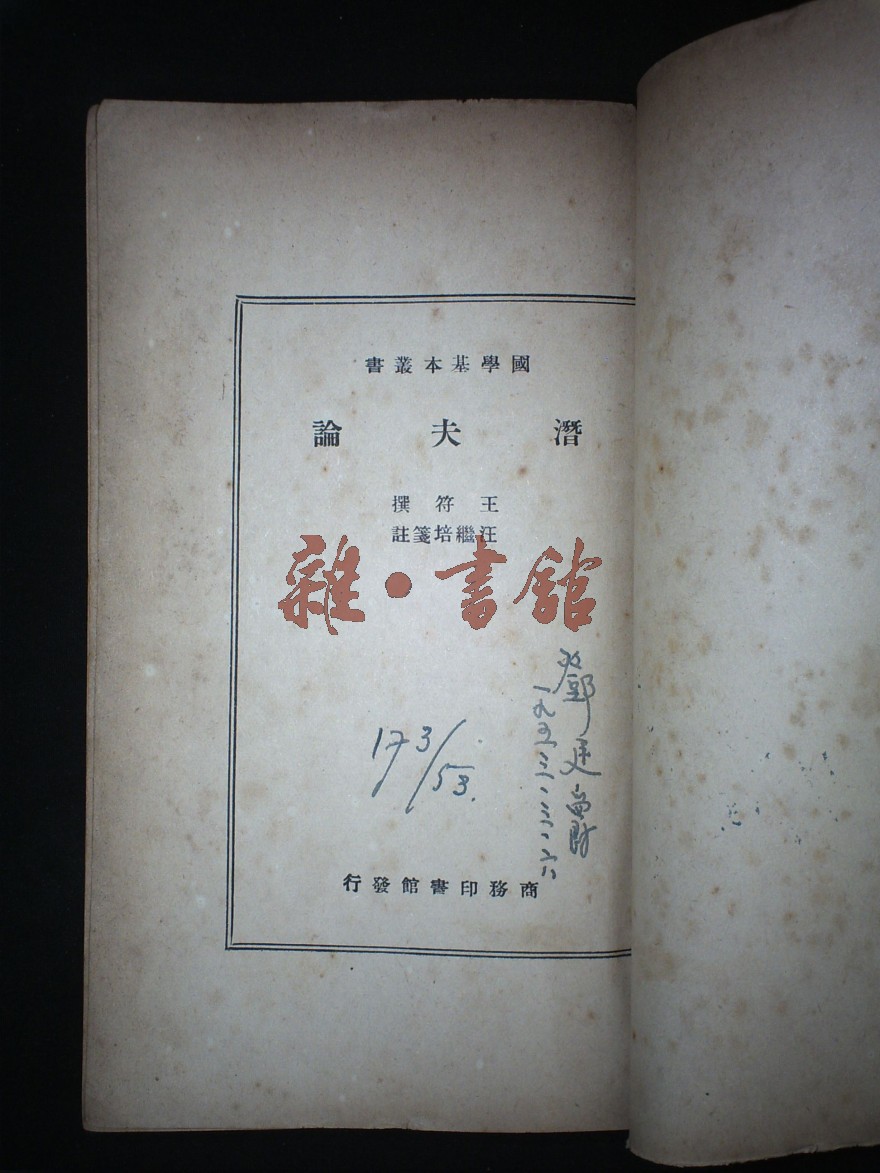 國學基本叢書
潛夫論
王符撰
汪繼培箋註
雜·書館
鄧
一九五三·三·六
17 3/53.
商務印書館發行